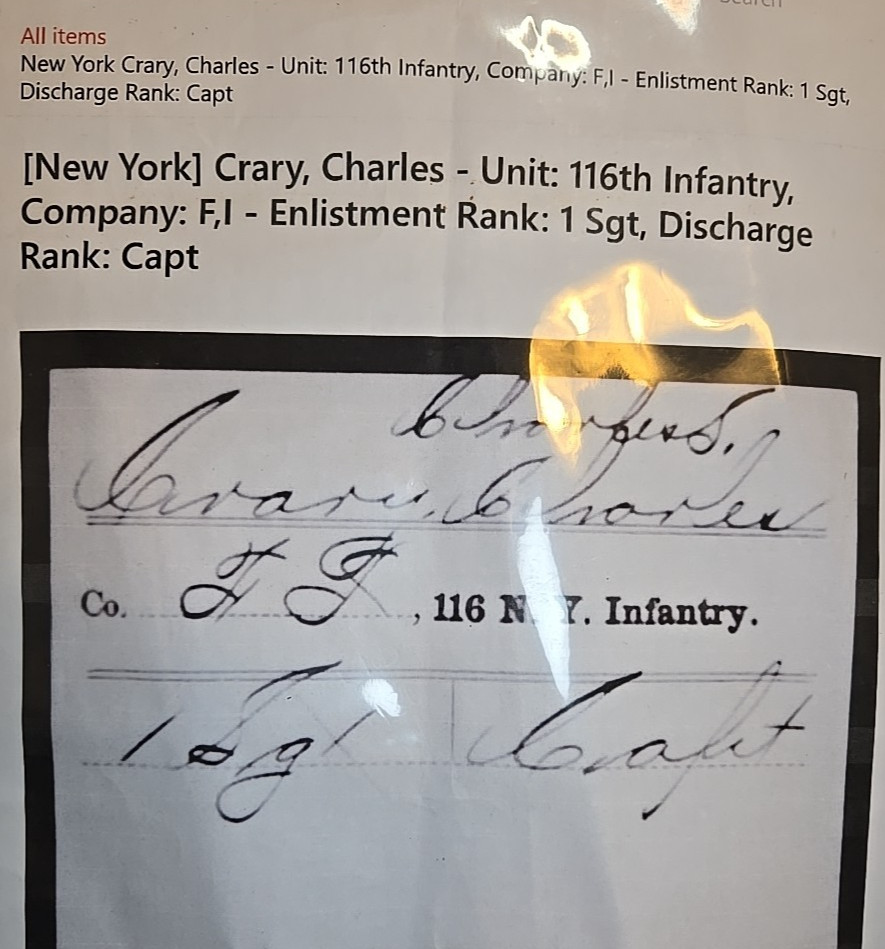 Search
All items
New York Crary, Charles - Unit: 116th Infantry, Company: F,I - Enlistment Rank: 1 Sgt,
Discharge Rank: Capt
[New York] Crary, Charles - Unit: 116th Infantry,
Company: F,I - Enlistment Rank: 1 Sgt, Discharge
Rank: Capt
Charles S.
Crary, Charles
Co. F I, 116 N. Y. Infantry.
1 Sgt Capt